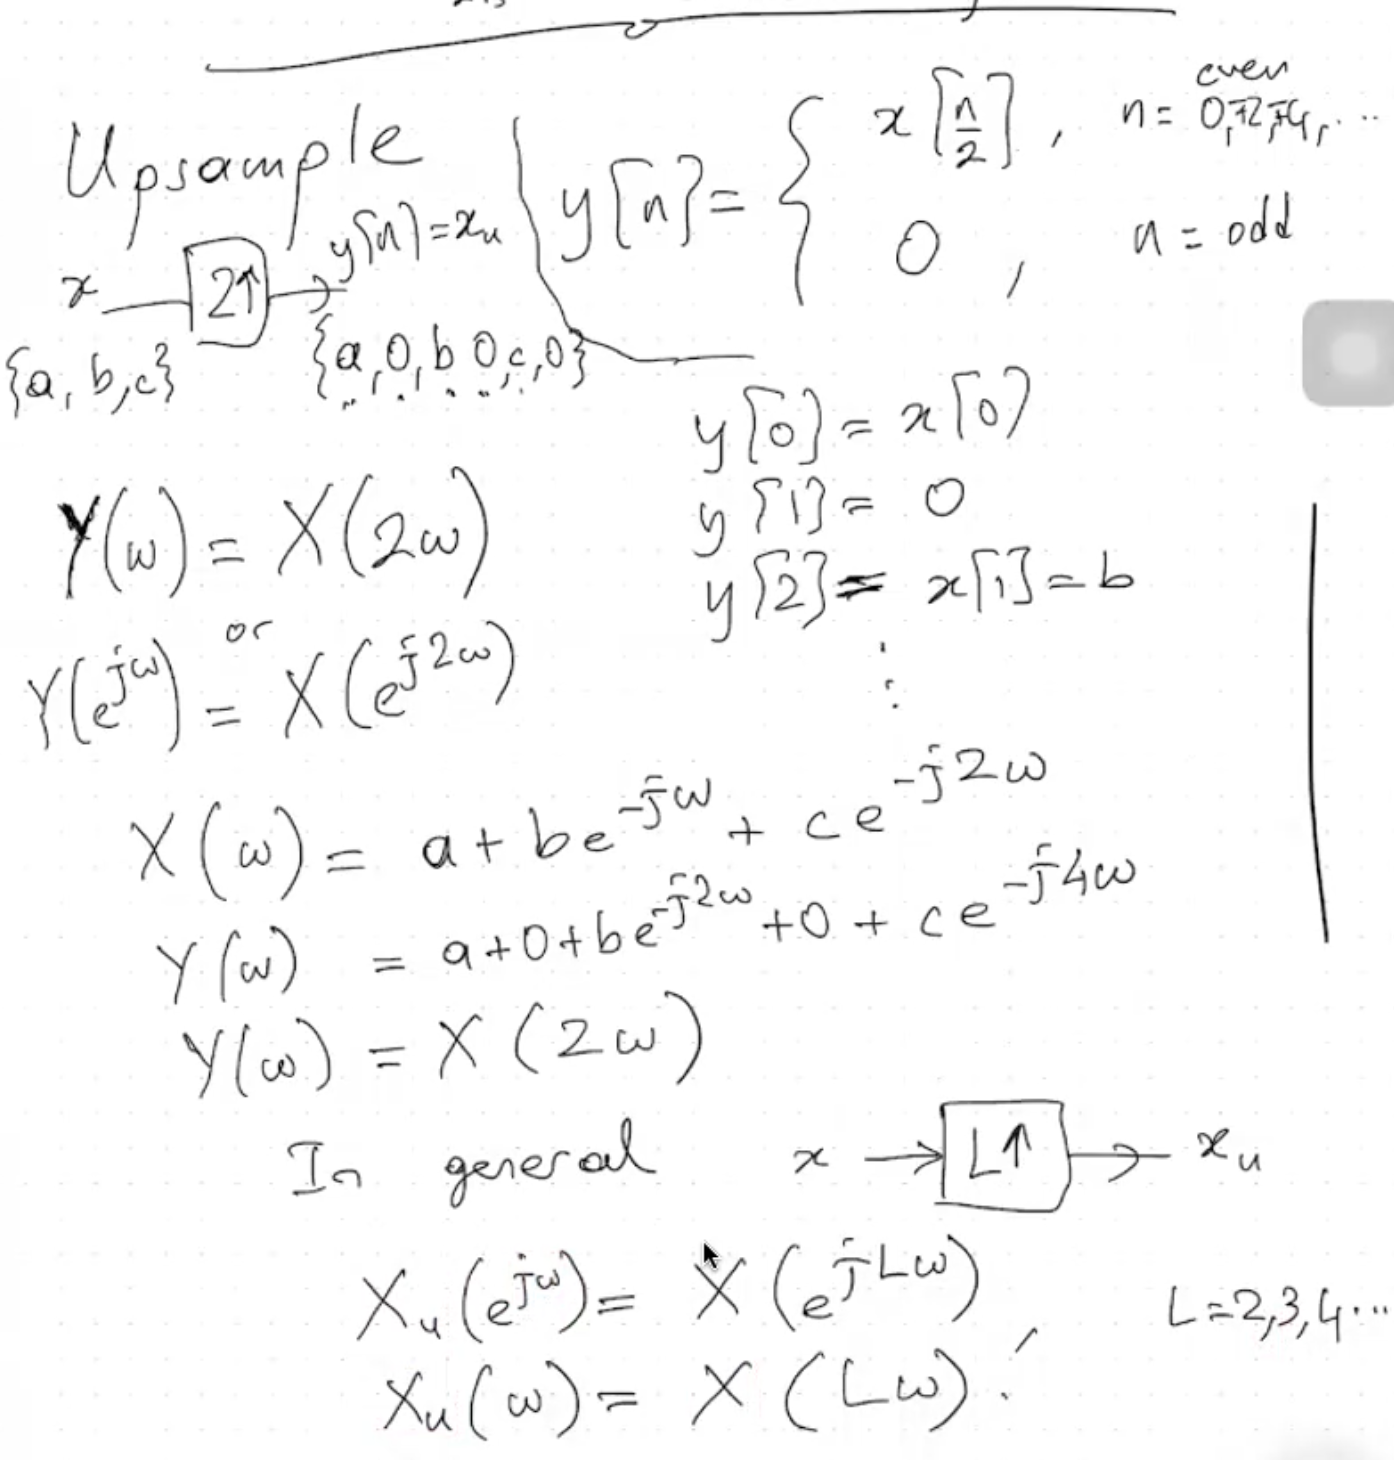 Upsample
x → [2↑] → y[n] = xᵤ
{a, b, c}
{a, 0, b, 0, c, 0}
y[n] = { x[n/2], n = 0, ∓2, ∓4, ... even
0, n = odd
y[0] = x[0]
y[1] = 0
y[2] = x[1] = b
⋮
Y(ω) = X(2ω)
or
Y(e^{jω}) = X(e^{j2ω})
X(ω) = a + be^{-jω} + ce^{-j2ω}
Y(ω) = a + 0 + be^{-j2ω} + 0 + ce^{-j4ω}
Y(ω) = X(2ω)
In general x → [L↑] → xᵤ
Xᵤ(e^{jω}) = X(e^{jLω}), L = 2, 3, 4 ...
Xᵤ(ω) = X(Lω).